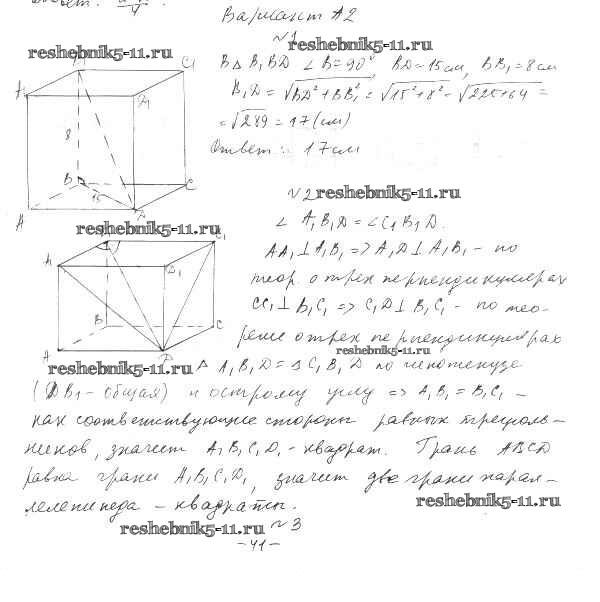 Вариант А2
reshebnik5-11.ru
№1
reshebnik5-11.ru
В Δ B₁BD ∠B=90°, BD=15см, BB₁=8см
B₁D = √BD²+BB₁² = √15²+8² = √225+64 =
= √289 = 17 (см)
Ответ: 17см
A₁
C₁
D₁
8
B
15
C
A
D
№2
reshebnik5-11.ru
∠A₁B₁D = ∠C₁B₁D.
AA₁⊥A₁B₁ => A₁D⊥A₁B₁ - по
теор. о трех перпендикулярах
CC₁⊥B₁C₁ => C₁D⊥B₁C₁ - по тео-
реме о трех перпендикулярах
reshebnik5-11.ru
A₁
C₁
D₁
B
C
A
D
reshebnik5-11.ru
reshebnik5-11.ru
Δ A₁B₁D = Δ C₁B₁D по гипотенузе
(DB₁ - общая) и острому углу => A₁B₁ = B₁C₁ -
как соответствующие стороны равных треуголь-
ников, значит A₁B₁C₁D₁ - квадрат. Грань ABCD
равна грани A₁B₁C₁D₁, значит две грани парал-
лелепипеда - квадраты.
reshebnik5-11.ru
reshebnik5-11.ru
№3
-41-